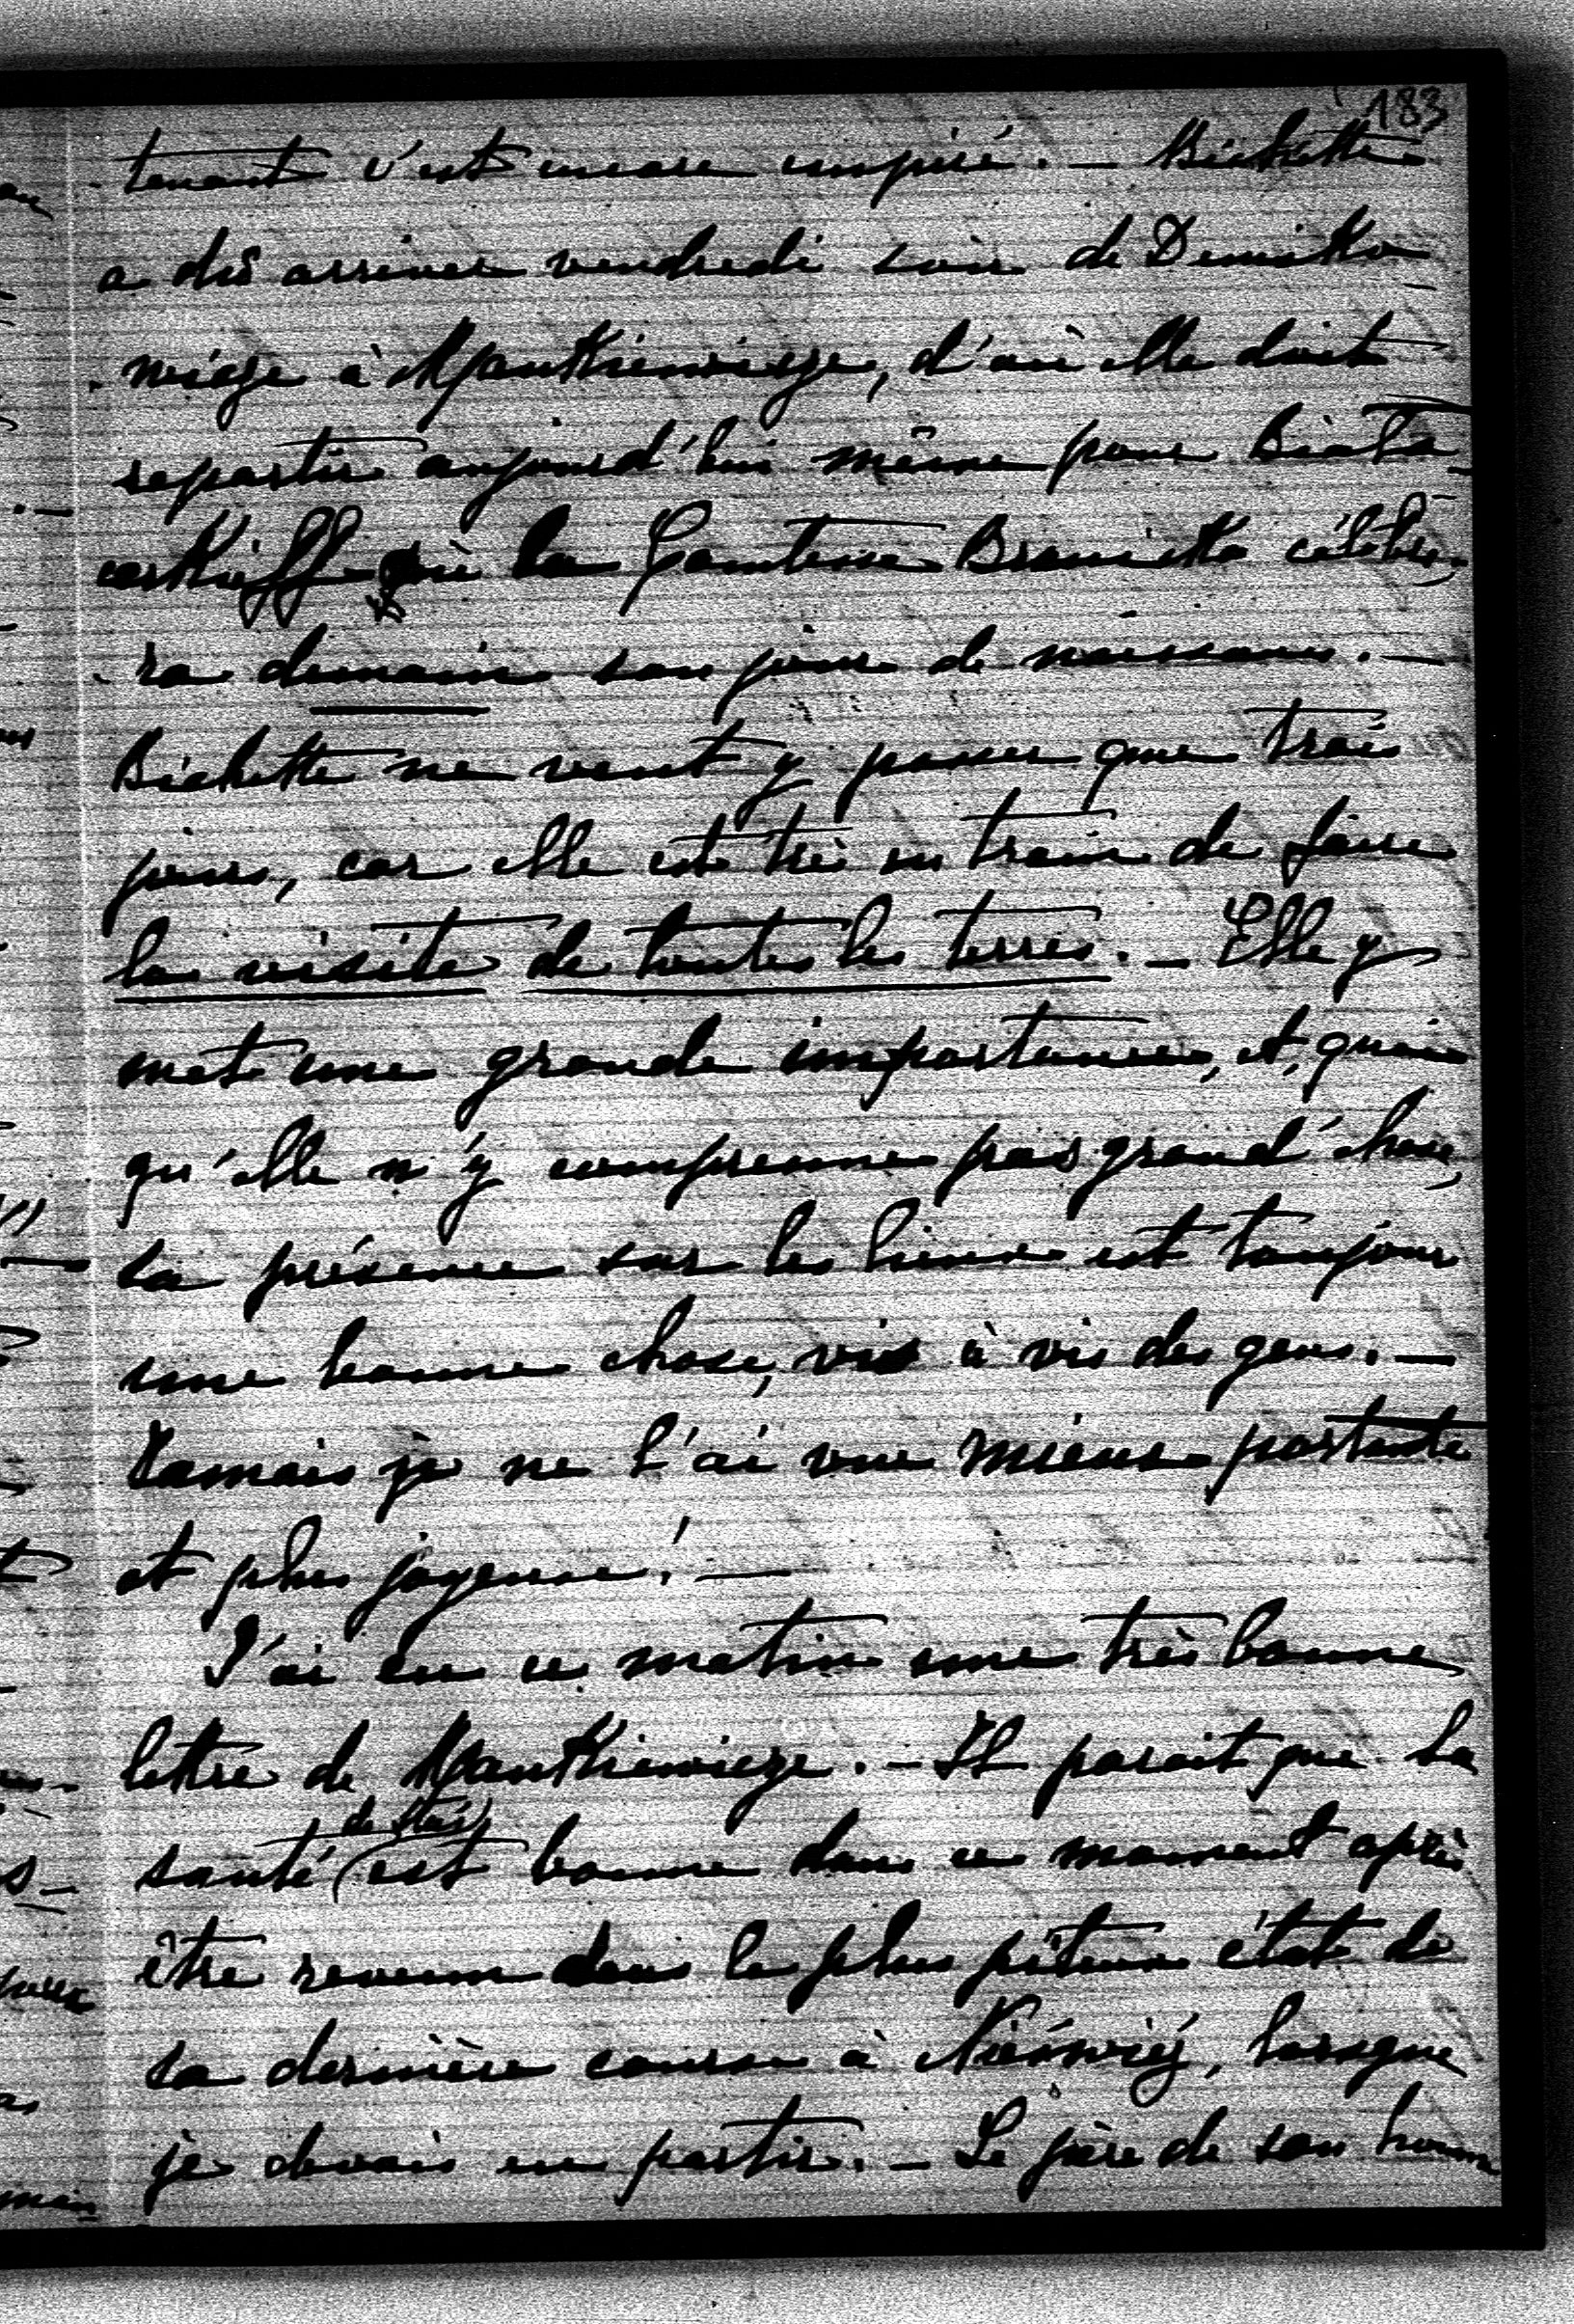 183
tenant c'est encore empiré. — Bichette
a dû arriver vendredi soir de Denisko-
wicze à Mankiewicze, d'où elle doit
repartir aujourd'hui même pour Biała-
cerkieff où la Comtesse Branicka célèbre-
ra demain son jour de naissance. —
Bichette ne veut y passer que trois
jours, car elle est très en train de faire
la visite de toutes les terres. — Elle y
met une grande importance, et, quoi-
qu'elle n'y comprenne pas grand'chose,
sa présence sur les lieux est toujours
une bonne chose, vis à vis des gens. —
Jamais je ne l'ai vue mieux portante
et plus joyeuse! —
J'ai eu ce matin une très bonne
lettre de Mankiewicze. — Il parait que la
santé (de Staś) est bonne dans ce moment après
être revenu dans le plus piteux état de
sa dernière course à Nieśwież, lorsque
je devais en partir. — Le père de son homme